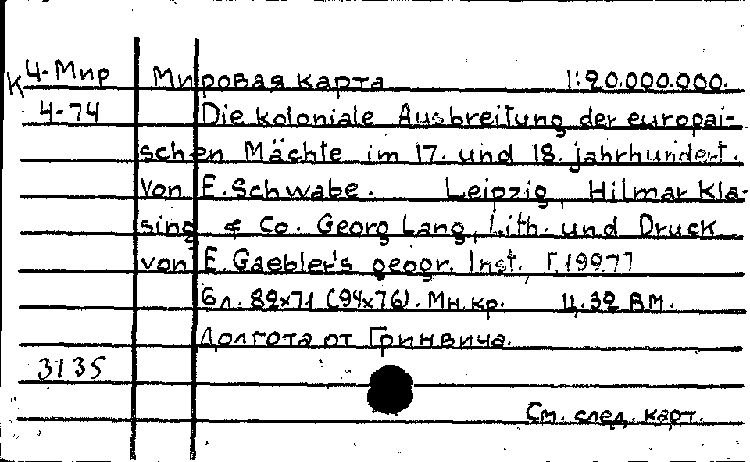 К 4-Мир Мировая карта 1:20.000.000.
4-74 Die koloniale Ausbreitung der europäi-
schen Mächte im 17. und 18. Jahrhundert.
Von E. Schwabe. Leipzig, Hilmar Kla-
sing & Co. Georg Lang, Lith. und Druck
von E. Gaebler's geogr. Inst.
6 л. 82x71 (94x76). Мн.кр. Ц. 32 ВМ.
Долгота от Гринвича.
3135
См. след. карт.